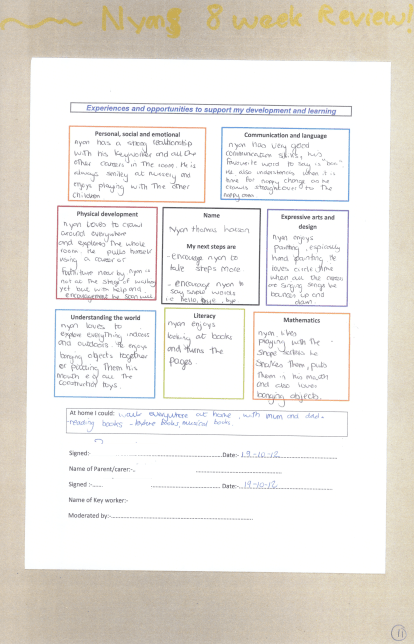 Nyms 8 week Review!
Experiences and opportunities to support my development and learning
Personal, social and emotional
nyon has a strong relationship
with his keyworker and all the
other carers in the room. He is
always smiley at nursery and
enjoys playing with the other
children
Communication and language
nyon has very good
communication skills, his
favourite word to say is
he also understands when it is
time for nappy change as he
crawls straight over to the
nappy
Physical development
nyon loves to crawl
around everywhere
and explores the whole
room. He pulls himself
using a
now by nyon is
not at the stage of walking
yet but with help and
encouragement he soon will
Name
Nyon thomas
My next steps are
- encourage nyon to
take steps more
- encourage nyon to
say simple words
i.e. hello, bye
Expressive arts and
design
nyon enjoys
painting, especially
hand painting. He
loves circle time
when all the
are singing songs he
bounces up and
down.
Understanding the world
nyon loves to
explore everything indoors
and outdoors. He enjoys
banging objects together
or putting them in his
mouth e.g all the
construction toys.
Literacy
nyon enjoys
looking at books
and turns the
pages
Mathematics
nyon likes
playing with the
shape he
shakes them, puts
them in his mouth
and also loves
banging objects.
At home I could: walk everywhere at home, with mum and dad.
reading books - books, musical books.
Signed: Date:- 19-10-12
Name of Parent/carer:-
Signed :- Date:- 19-10-12
Name of Key worker:-
Moderated by:-
11